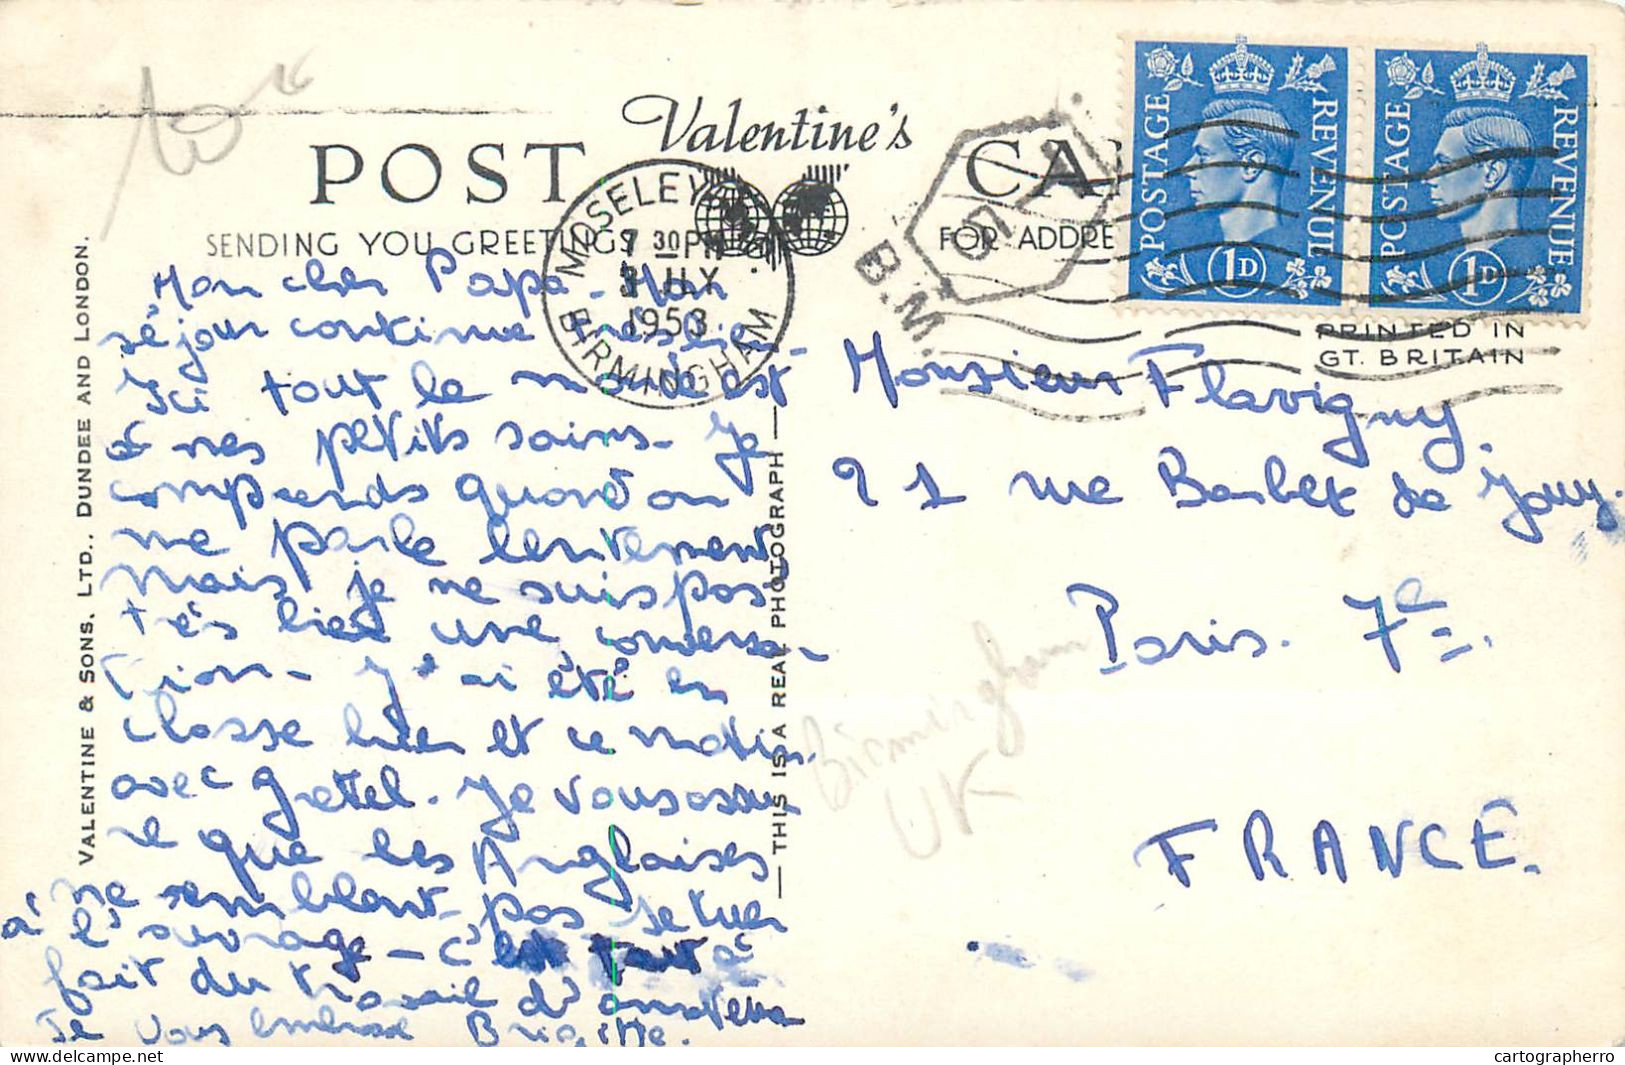 Valentine's
POST CA
SENDING YOU GREETINGS
FOR ADDRE
MOSELEY
7 30 PM
JLY
1953
BIRMINGHAM
B.M.
POSTAGE REVENUE
1D
POSTAGE REVENUE
1D
PRINTED IN
GT. BRITAIN
VALENTINE & SONS, LTD., DUNDEE AND LONDON.
THIS IS A REAL PHOTOGRAPH
Mon cher Papa - Mon
séjour continue très bien -
Ici tout le monde est
à mes petits soins - Je
comprends quand on
me parle lentement
Mais je ne suis pas
très bien une conversa-
tion - J'ai été en
classe hier et ce matin
avec Gretel. Je vous assu
re que les Anglaises
ne semblent pas se tuer
à l'ouvrage - c'est tout à
fait du travail d'amateur
Je vous embrasse Brigitte.
Monsieur Flavigny
21 rue Barbet de Jouy.
Paris. 7e.
FRANCE.
Birmingham
UK
cartographerro